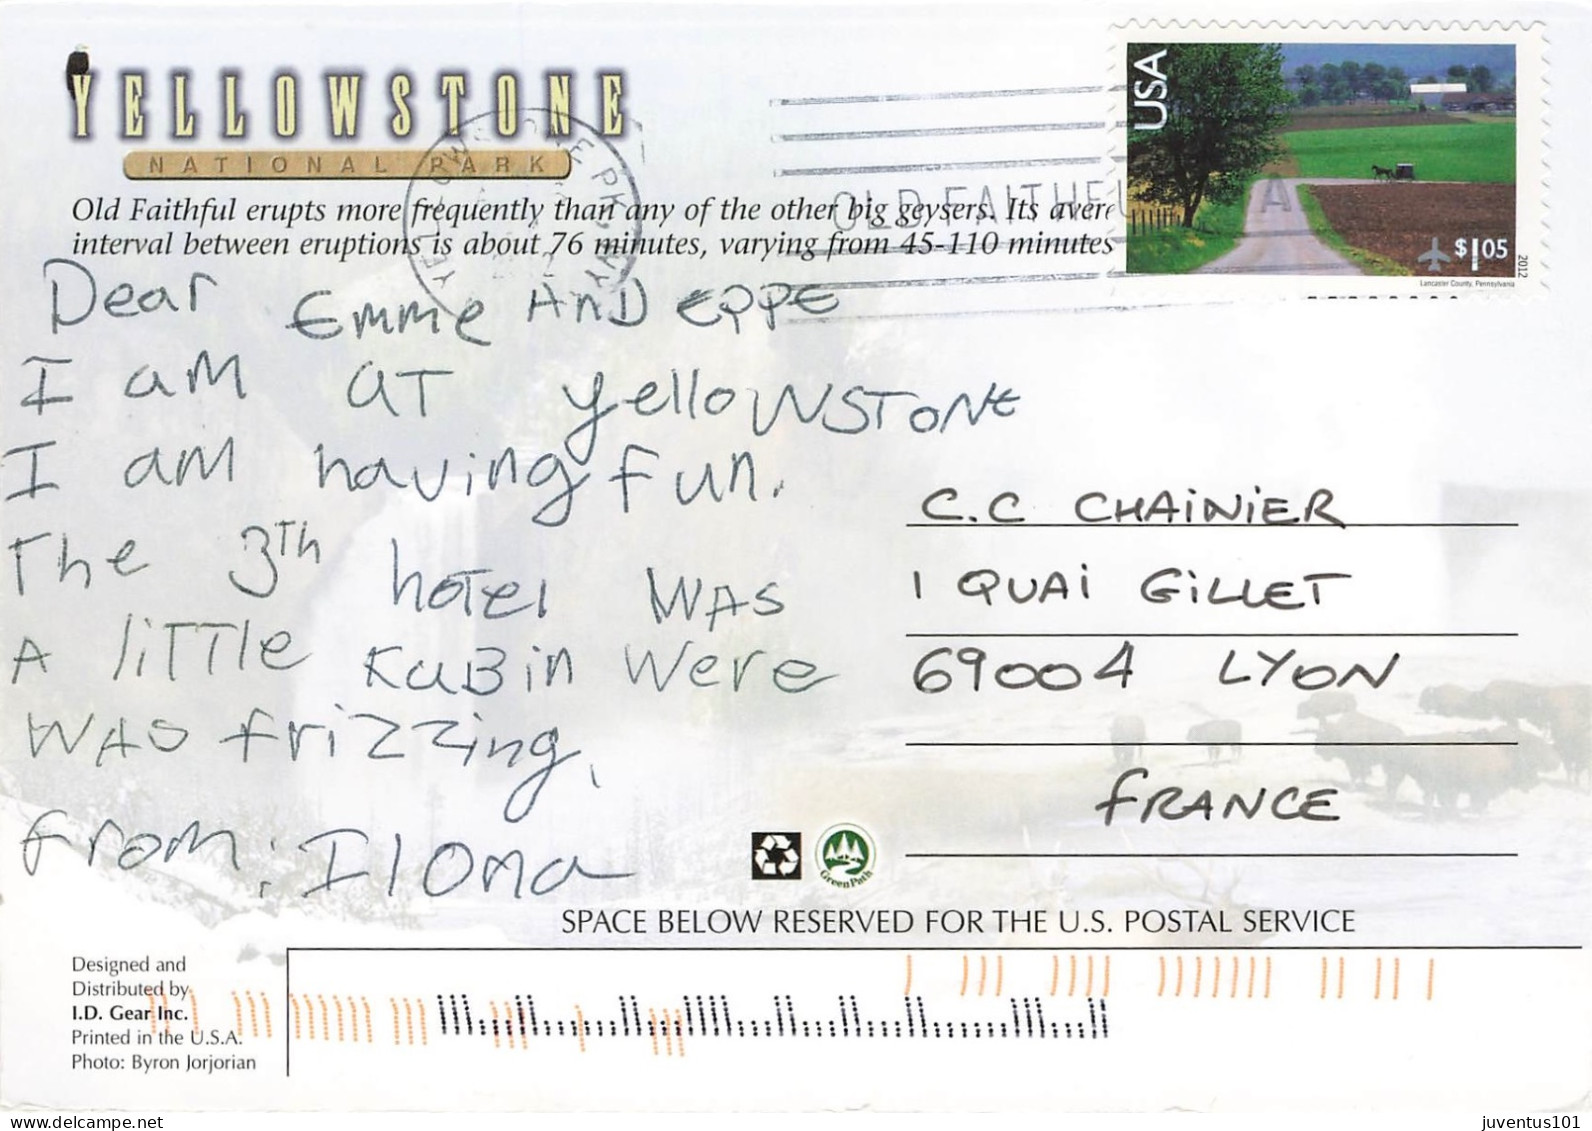 YELLOWSTONE
NATIONAL PARK
Old Faithful erupts more frequently than any of the other big geysers. Its aver
interval between eruptions is about 76 minutes, varying from 45-110 minutes
OLD FAITHFU
USA
$1.05
2012
Lancaster County, Pennsylvania
Dear Emme AnD EPPE
I am aT yelloWSToNe
I am having fun.
The 3Th hoTel WAS
A liTTle KaBin Were
WAS frizzing,
From: Ilona
C.C CHAINIER
1 QUAI GILLET
69004 LYON
FRANCE
GreenPath
SPACE BELOW RESERVED FOR THE U.S. POSTAL SERVICE
Designed and
Distributed by
I.D. Gear Inc.
Printed in the U.S.A.
Photo: Byron Jorjorian
www.delcampe.net
juventus101